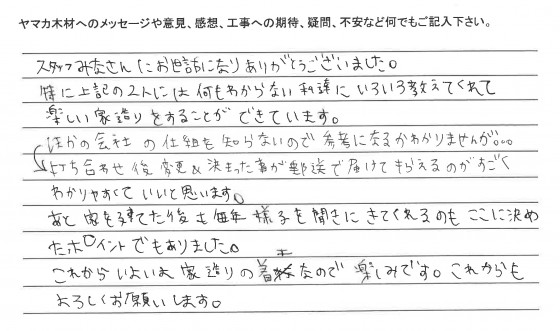 ヤマカ木材へのメッセージや意見、感想、工事への期待、疑問、不安など何でもご記入下さい。
スタッフみなさんにお世話になりありがとうございました。
特に上記の2人には何もわからない私達にいろいろ教えてくれて
楽しい家造りをすることができています。
ほかの会社の仕組を知らないので参考になるかわかりませんが。。。
打ち合わせ後、変更&決まった事が郵送で届けてもらえるのがすごく
わかりやすくていいと思います。
あと家を建てた後も毎年様子を聞きにきてくれるのもここに決め
たポイントでもありました。
これからいよいよ家造りの着工なので楽しみです。これからも
よろしくお願いします。